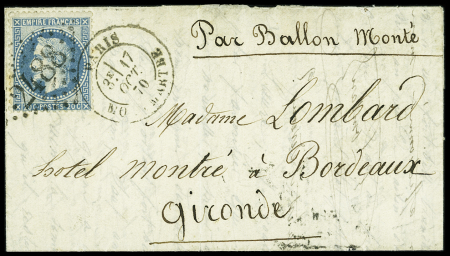 EMPIRE FRANÇAIS
20c POSTES 20c
PARIS
3E
17
OCT.
70
Par Ballon Monté
Madame Lombard
hotel Montré à Bordeaux
Gironde